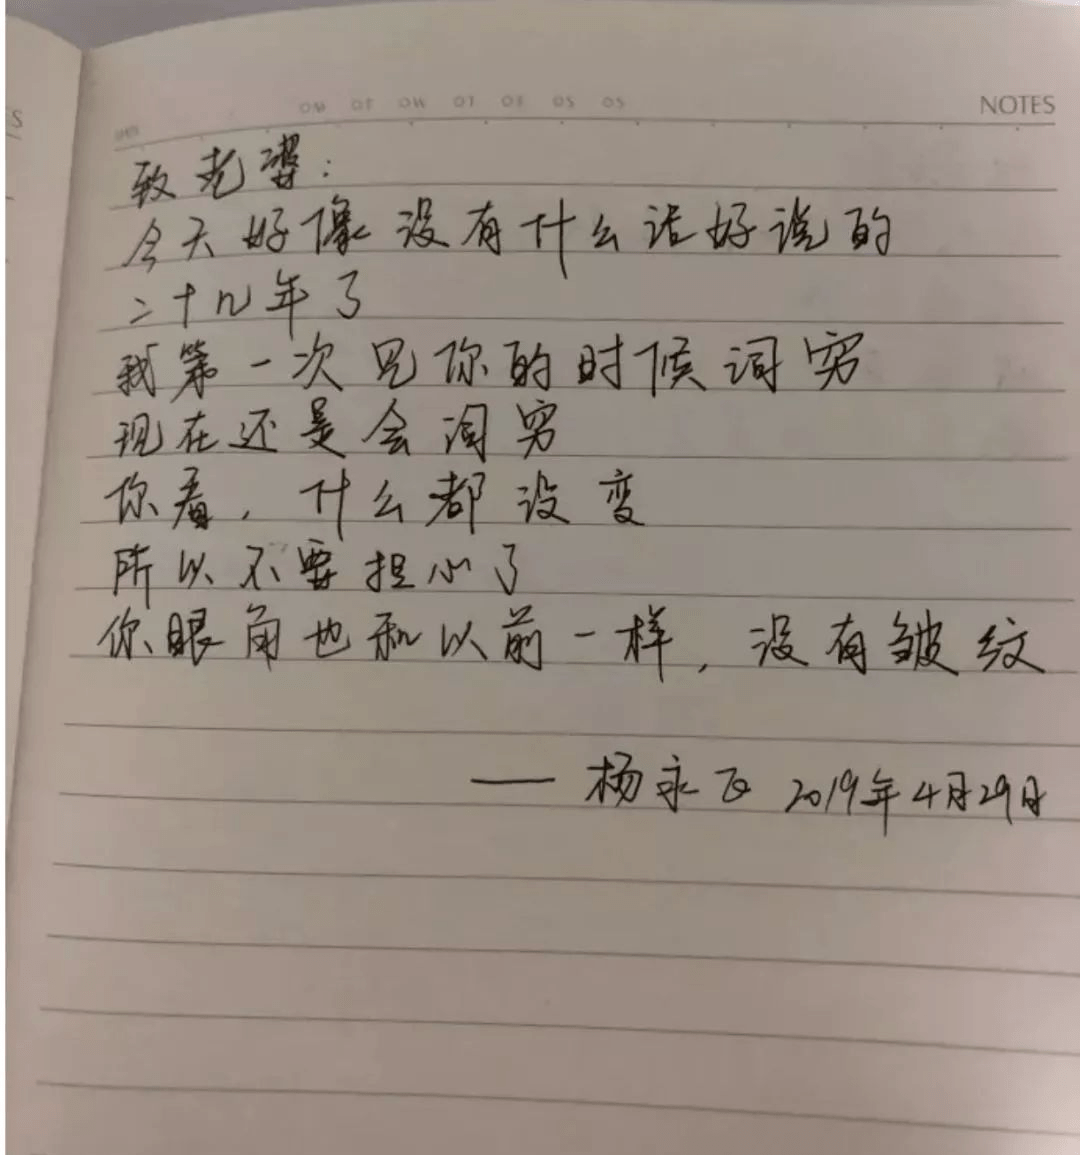 NOTES
致老婆：
今天好像没有什么话好说的
二十几年了
我第一次见你的时候词穷
现在还是会词穷
你看，什么都没变
所以不要担心了
你眼角也和以前一样，没有皱纹
——杨永正 2019年4月29日